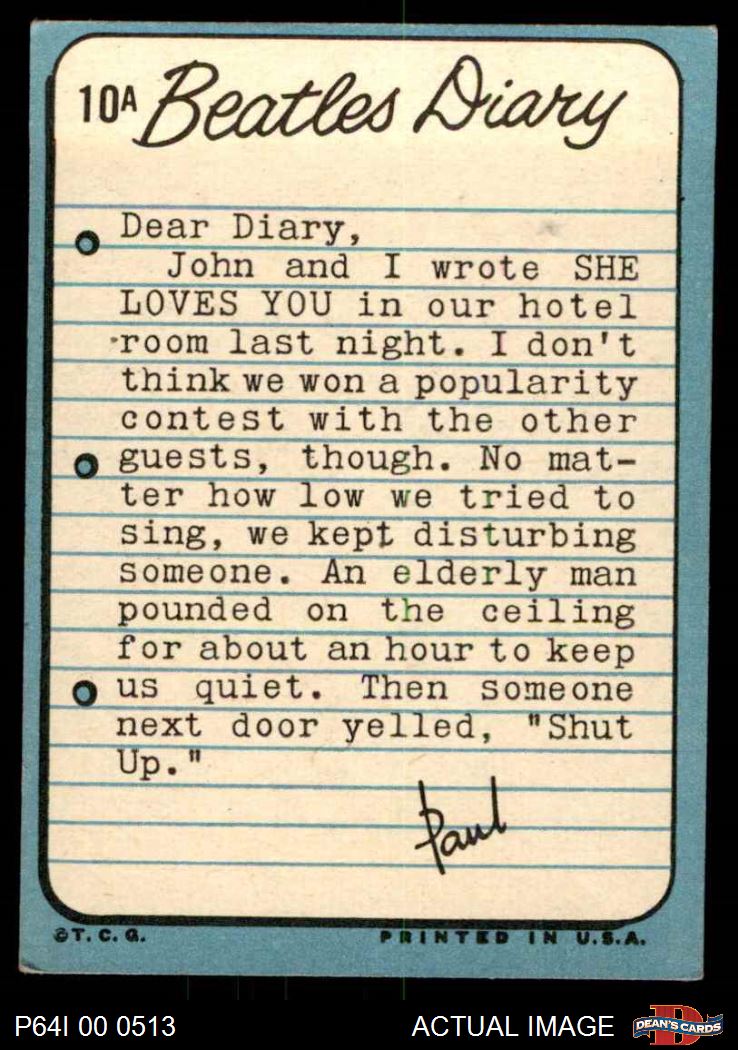 10A Beatles Diary
Dear Diary,
John and I wrote SHE
LOVES YOU in our hotel
room last night. I don't
think we won a popularity
contest with the other
guests, though. No mat-
ter how low we tried to
sing, we kept disturbing
someone. An elderly man
pounded on the ceiling
for about an hour to keep
us quiet. Then someone
next door yelled, "Shut
Up."
Paul
©T. C. G. PRINTED IN U.S.A.
P64I 00 0513 ACTUAL IMAGE D DEAN'S CARDS